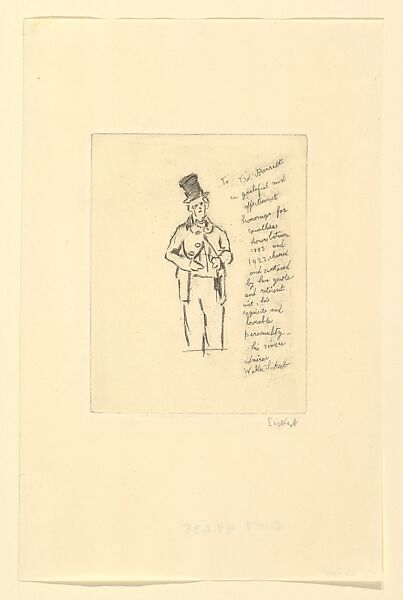 To T.W. Barrett
in grateful and
affectionate
homage for
countless
hours between
1885 and
1922 cheered
and
by his gentle
and reticent
wit his
exquisite and
lovable
personality
his sincere
admirer
Walter Sickert
Sickert